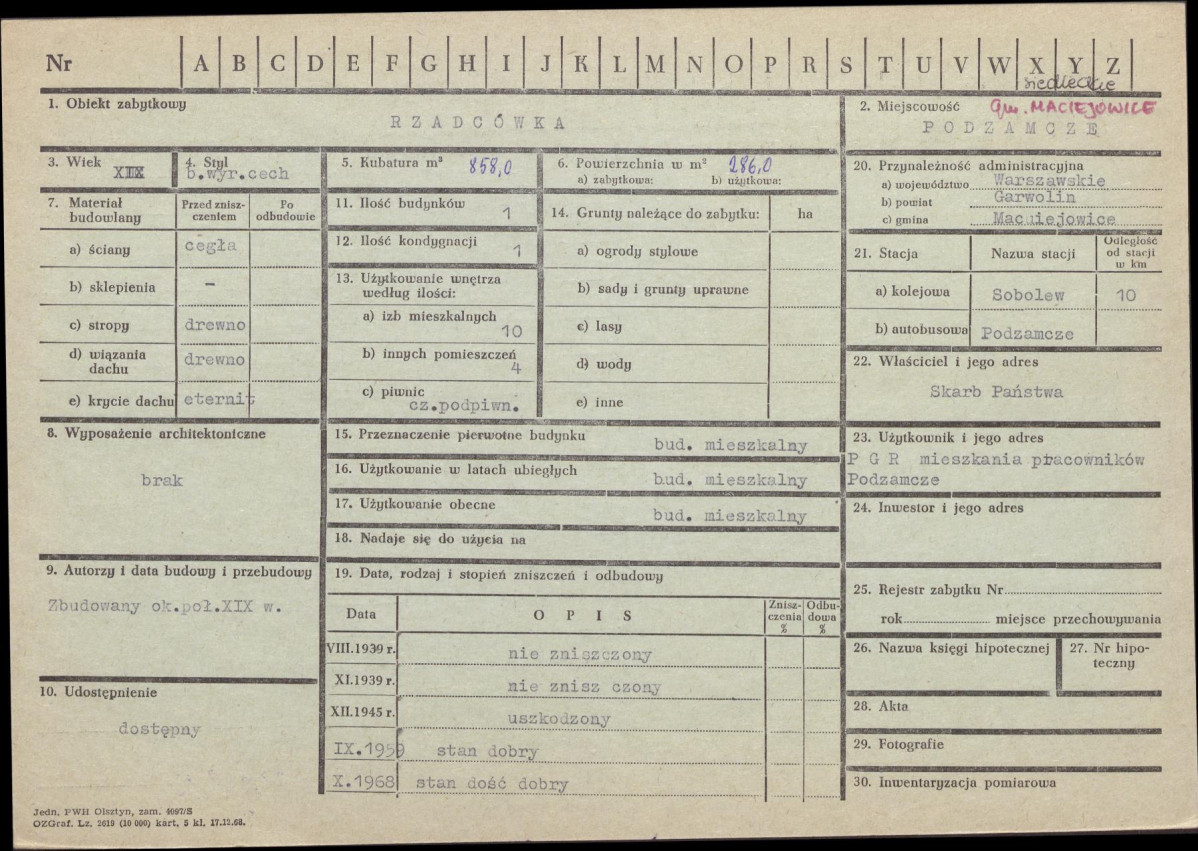 Nr A B C D E F G H I J K L M N O P R S T U V W X Y Z
siedleckie
1. Obiekt zabytkowy
RZADCÓWKA
2. Miejscowość gm. MACIEJOWICE
PODZAMCZE
3. Wiek
XIX
4. Styl
b.wyr.cech
5. Kubatura m³ 858,0
6. Powierzchnia w m² 286,0
a) zabytkowa: b) użytkowa:
7. Materiał budowlany
Przed zniszczeniem
Po odbudowie
a) ściany cegła
b) sklepienia -
c) stropy drewno
d) wiązania dachu drewno
e) krycie dachu eternit
8. Wyposażenie architektoniczne
brak
9. Autorzy i data budowy i przebudowy
Zbudowany ok.poł.XIX w.
10. Udostępnienie
dostępny
11. Ilość budynków 1
12. Ilość kondygnacji 1
13. Użytkowanie wnętrza
według ilości:
a) izb mieszkalnych
10
b) innych pomieszczeń
4
c) piwnic
cz.podpiwn.
14. Grunty należące do zabytku: ha
a) ogrody stylowe
b) sady i grunty uprawne
c) lasy
d) wody
e) inne
15. Przeznaczenie pierwotne budynku bud. mieszkalny
16. Użytkowanie w latach ubiegłych bud. mieszkalny
17. Użytkowanie obecne bud. mieszkalny
18. Nadaje się do użycia na
19. Data, rodzaj i stopień zniszczeń i odbudowy
Data OPIS Zniszczenia % Odbudowa %
VIII.1939 r. nie zniszczony
XI.1939 r. nie znisz czony
XII.1945 r. uszkodzony
IX.1959 stan dobry
X.1968 stan dość dobry
20. Przynależność administracyjna
a) województwo Warszawskie
b) powiat Garwolin
c) gmina Macuiejowice
21. Stacja Nazwa stacji Odległość od stacji w km
a) kolejowa Sobolew 10
b) autobusowa Podzamcze
22. Właściciel i jego adres
Skarb Państwa
23. Użytkownik i jego adres
P G R mieszkania pracowników
Podzamcze
24. Inwestor i jego adres
25. Rejestr zabytku Nr
rok miejsce przechowywania
26. Nazwa księgi hipotecznej
27. Nr hipoteczny
28. Akta
29. Fotografie
30. Inwentaryzacja pomiarowa
Jedn. PWH Olsztyn, zam. 4097/S
OZGraf. Lz. 2619 (10 000) kart. 5 kl. 17.12.68.